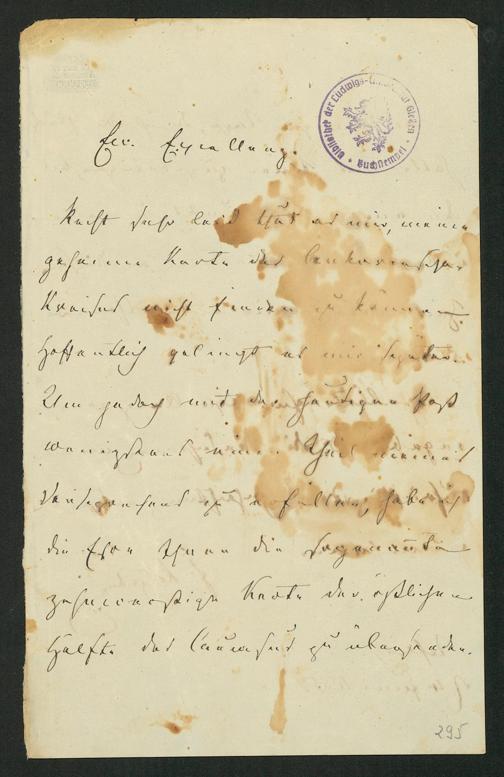 Bibliothek der Ludwigs-Universität Gießen • Buchstempel •
Ew. Excellenz.
Recht sehr leid thut es mir, meine
geheime Karte des lenkoranschen
Kreises nicht finden zu können
hoffentlich gelingt es mir später.
Um jedoch mit der heutigen Post
wenigstens einen Theil meines
Versprechens zu erfüllen, habe ich
die Ehre Ihnen die sogenannte
zehnwerstige Karte der östlichen
Hälfte des Caucasus zu übersenden.
295